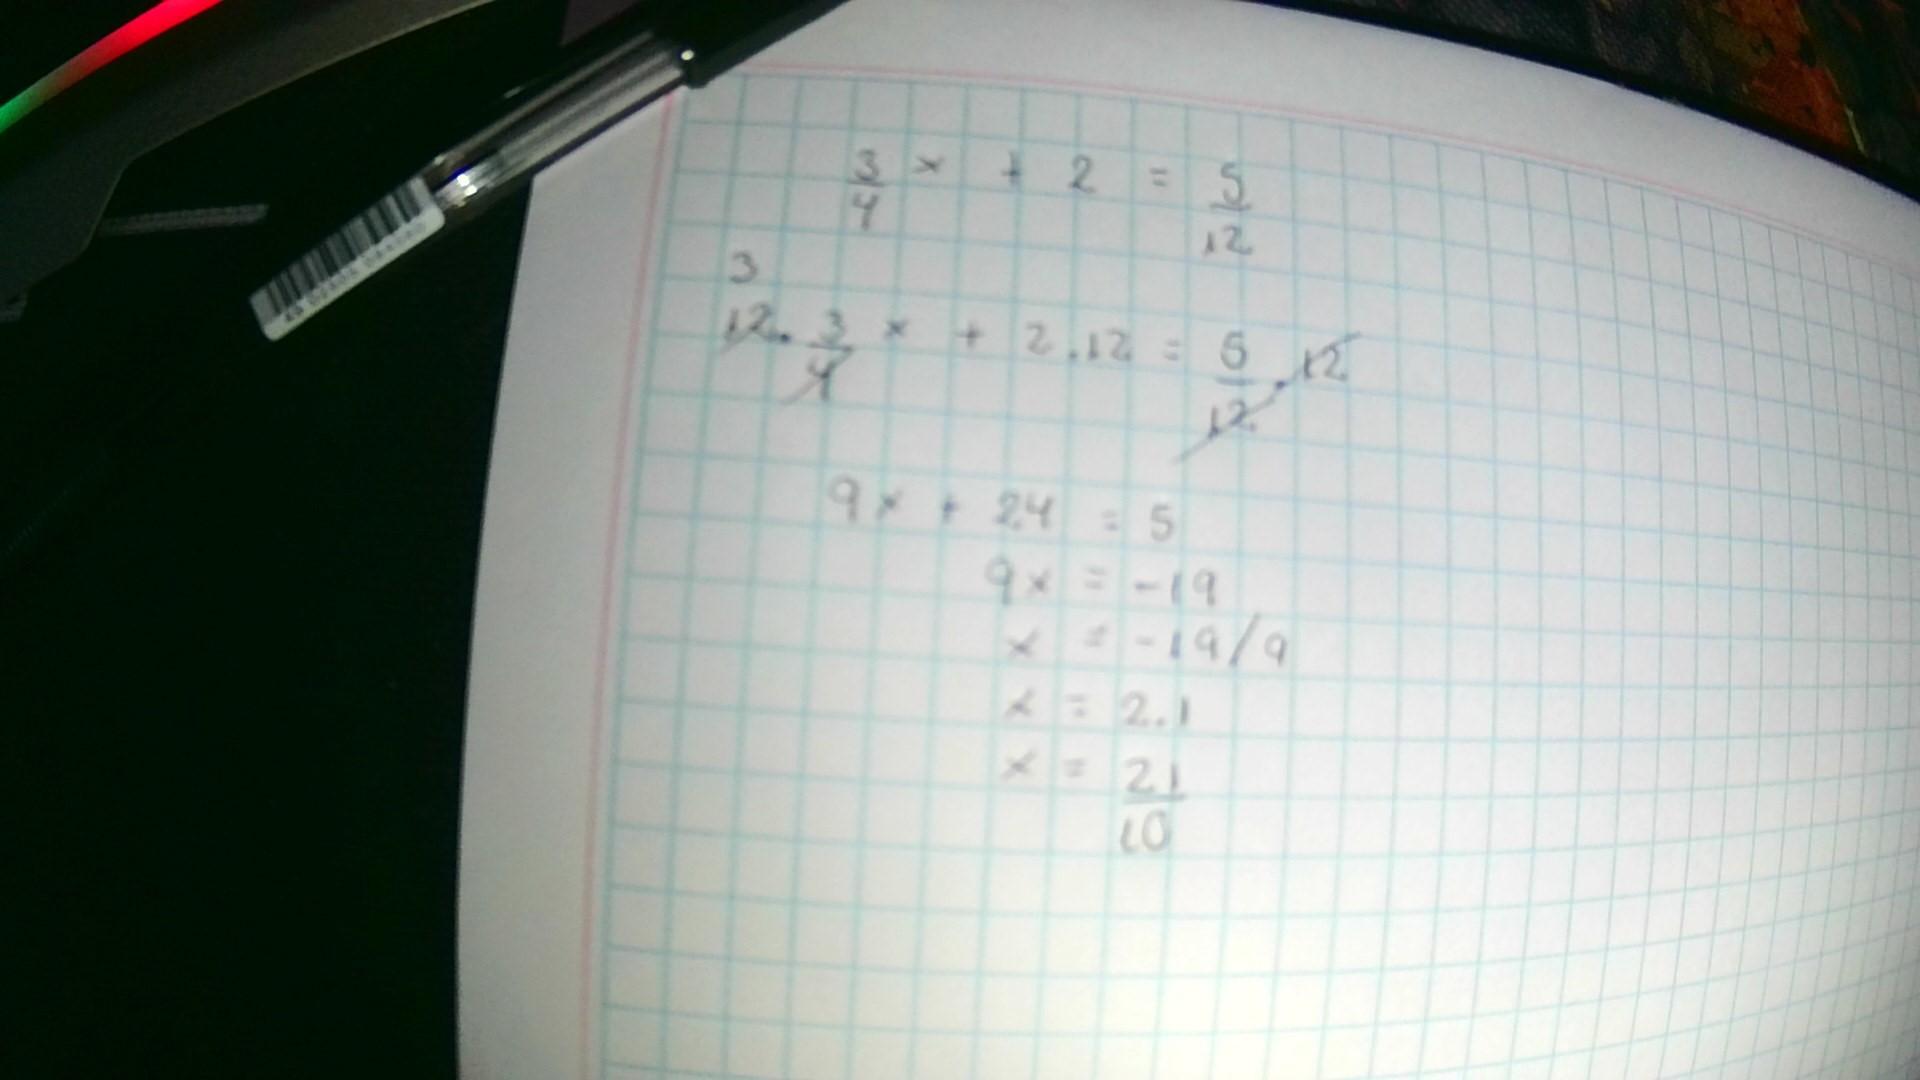 3/4 x + 2 = 5/12
3
12 . 3/4 x + 2.12 = 5/12 . 12
9x + 24 = 5
9x = -19
x = -19/9
x = 2.1
x = 21/10